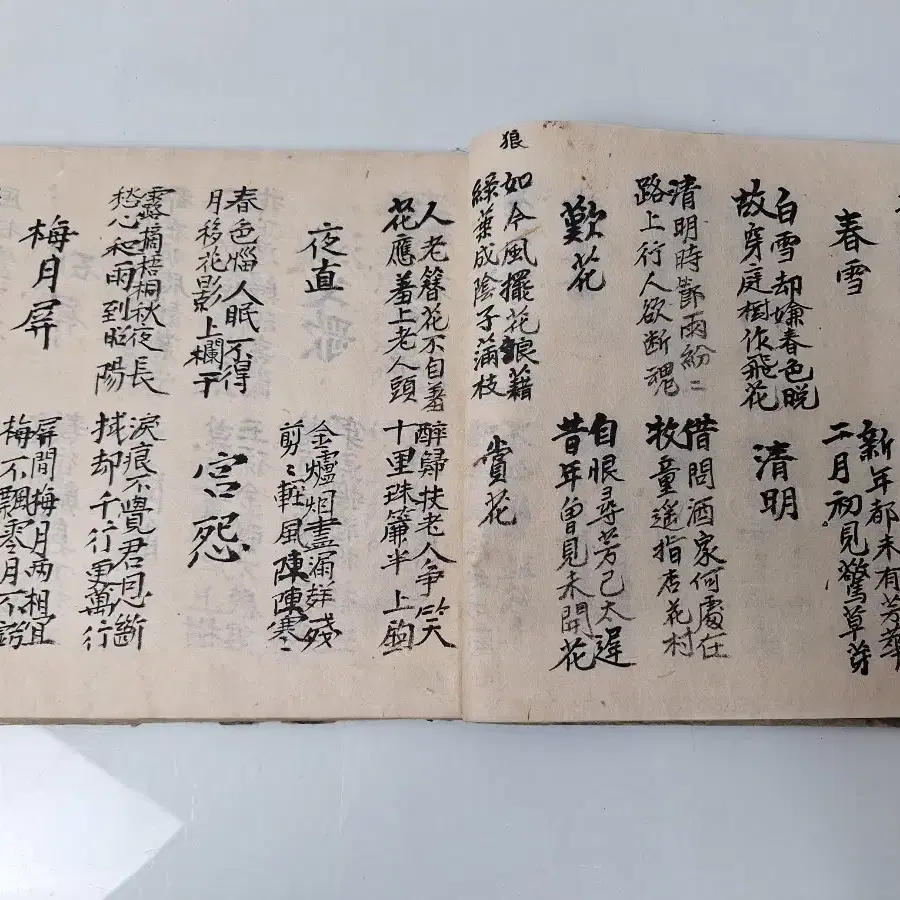 春雪
新年都未有芳華
二月初見驚草芽
白雪却嫌春色晩
故穿庭樹作飛花
清明
清明時節雨紛〻
路上行人欲断魂
借問酒家何處在
牧童遥指杏花村
歎花
自恨尋芳已太遅
昔年曽見未開花
狼
如今風擺花狼藉
綠葉成陰子満枝
賞花
人老簪花不自羞
花應羞上老人頭
醉歸扶老人争笑
十里珠簾半上鉤
夜直
金爐烟盡漏聲殘
剪〻軽風陳陳寒〻
春色惱人眠不得
月移花影上欄干
宮怨
露摘梧桐秋夜長
愁心和雨到昭陽
淚痕不學君恩斷
拭却千行更萬行
梅月屏
屏間梅月両相宜
梅不飄零月不